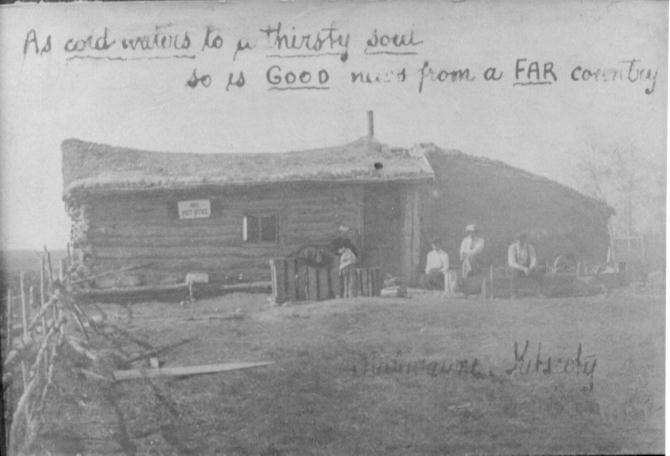 As cold waters to a thirsty soul
so is GOOD news from a FAR country
POST OFFICE
Kitscoty